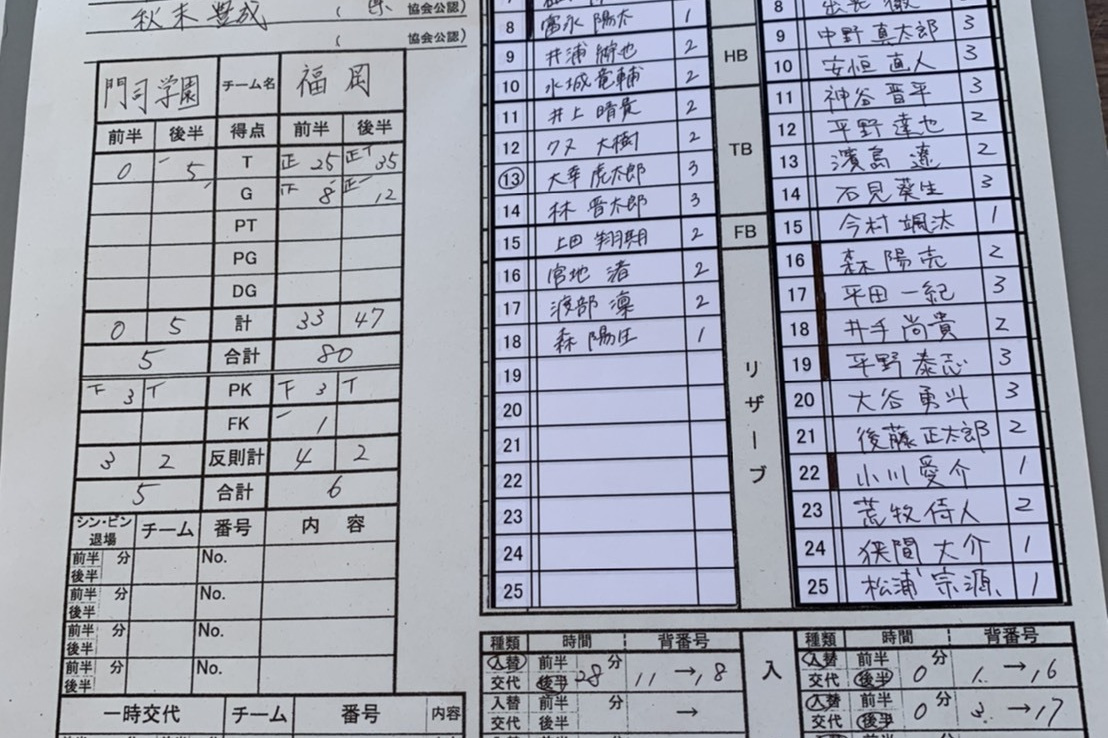 秋末豊成 ( 県 協会公認)
( 協会公認)
門司学園 チーム名 福岡
前半 後半 得点 前半 後半
0 一 5 T 正 25 正T 35
G 下 8 正一 12
PT
PG
DG
0 5 計 33 47
5 合計 80
下 3 T PK 下 3 T
FK 一 1
3 2 反則計 4 2
5 合計 6
シン・ビン 退場 チーム 番号 内容
前半 後半 分 No.
前半 後半 分 No.
前半 後半 分 No.
前半 後半 分 No.
一時交代 チーム 番号 内容
8 富永 陽太 1
9 井浦 也 2
10 水城 竜輔 2
11 井上 晴貴 2
12 大樹 2
13 大幸 虎太郎 3
14 林 晋太郎 3
15 上田 翔 2
16 宮地 渚 2
17 渡部 凜 2
18 森 陽 1
19
20
21
22
23
24
25
HB
TB
FB
リザーブ
8
9 中野 真太郎 3
10 安恒 直人 3
11 神谷 晋平 3
12 平野 達也 2
13 濱島 遼 2
14 石見 葵生 3
15 今村 颯汰 1
16 森 陽 2
17 平田 一紀 3
18 井手 尚貴 2
19 平野 泰志 3
20 大谷 勇斗 3
21 後藤 正太郎 2
22 小川 愛介 1
23 荒牧 侍人 2
24 狭間 大介 1
25 松浦 宗源 1
種類 時間 背番号
入替 交代 前半 後半 28 分 11 → 18
入替 交代 前半 後半 分 →
入
種類 時間 背番号
入替 交代 前半 後半 0 分 1 → 16
入替 交代 前半 後半 0 分 3 → 17